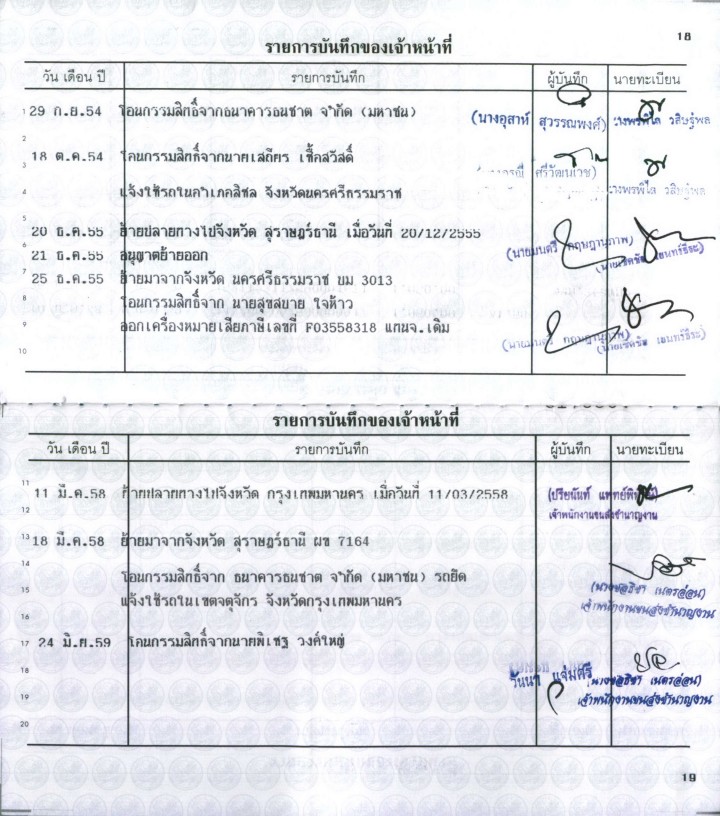 18
รายการบันทึกของเจ้าหน้าที่
วัน เดือน ปี รายการบันทึก ผู้บันทึก นายทะเบียน
1 29 ก.ย.54 โอนกรรมสิทธิ์จากธนาคารธนชาต จำกัด (มหาชน) (นางอุสาห์ สุวรรณพงศ์) วสิษฐ์พล
2
3 18 ต.ค.54 โอนกรรมสิทธิ์จากนายเสถียร เชื้อสวัสดิ์
4 แจ้งใช้รถในอำเภอสิชล จังหวัดนครศรีธรรมราช วสิษฐ์พล
5 20 ธ.ค.55 ย้ายปลายทางไปจังหวัด สุราษฎร์ธานี เมื่อวันที่ 20/12/2555 (นายมนตรี กฤษฎานุภาพ)
6 21 ธ.ค.55 อนุญาตย้ายออก
7 25 ธ.ค.55 ย้ายมาจากจังหวัด นครศรีธรรมราช ผม 3013
8 โอนกรรมสิทธิ์จาก นายสุขสบาย ใจห้าว
9 ออกเครื่องหมายเสียภาษีเลขที่ F03558318 แทนจ.เดิม (นายมนตรี กฤษฎานุภาพ)
10
รายการบันทึกของเจ้าหน้าที่
วัน เดือน ปี รายการบันทึก ผู้บันทึก นายทะเบียน
11 11 มี.ค.58 ย้ายปลายทางไปจังหวัด กรุงเทพมหานคร เมื่อวันที่ 11/03/2558
12 เจ้าพนักงานขนส่งชำนาญงาน
13 18 มี.ค.58 ย้ายมาจากจังหวัด สุราษฎร์ธานี ผข 7164
14 โอนกรรมสิทธิ์จาก ธนาคารธนชาต จำกัด (มหาชน) รถยึด
15 แจ้งใช้รถในเขตจตุจักร จังหวัดกรุงเทพมหานคร เนตรอ่อน)
16 เจ้าพนักงานขนส่งชำนาญงาน
17 24 มิ.ย.59 โอนกรรมสิทธิ์จากนายพิเชฐ วงค์ใหญ่
18 วันนา แจ่มศรี เนตรอ่อน)
19 เจ้าพนักงานขนส่งชำนาญงาน
20
19